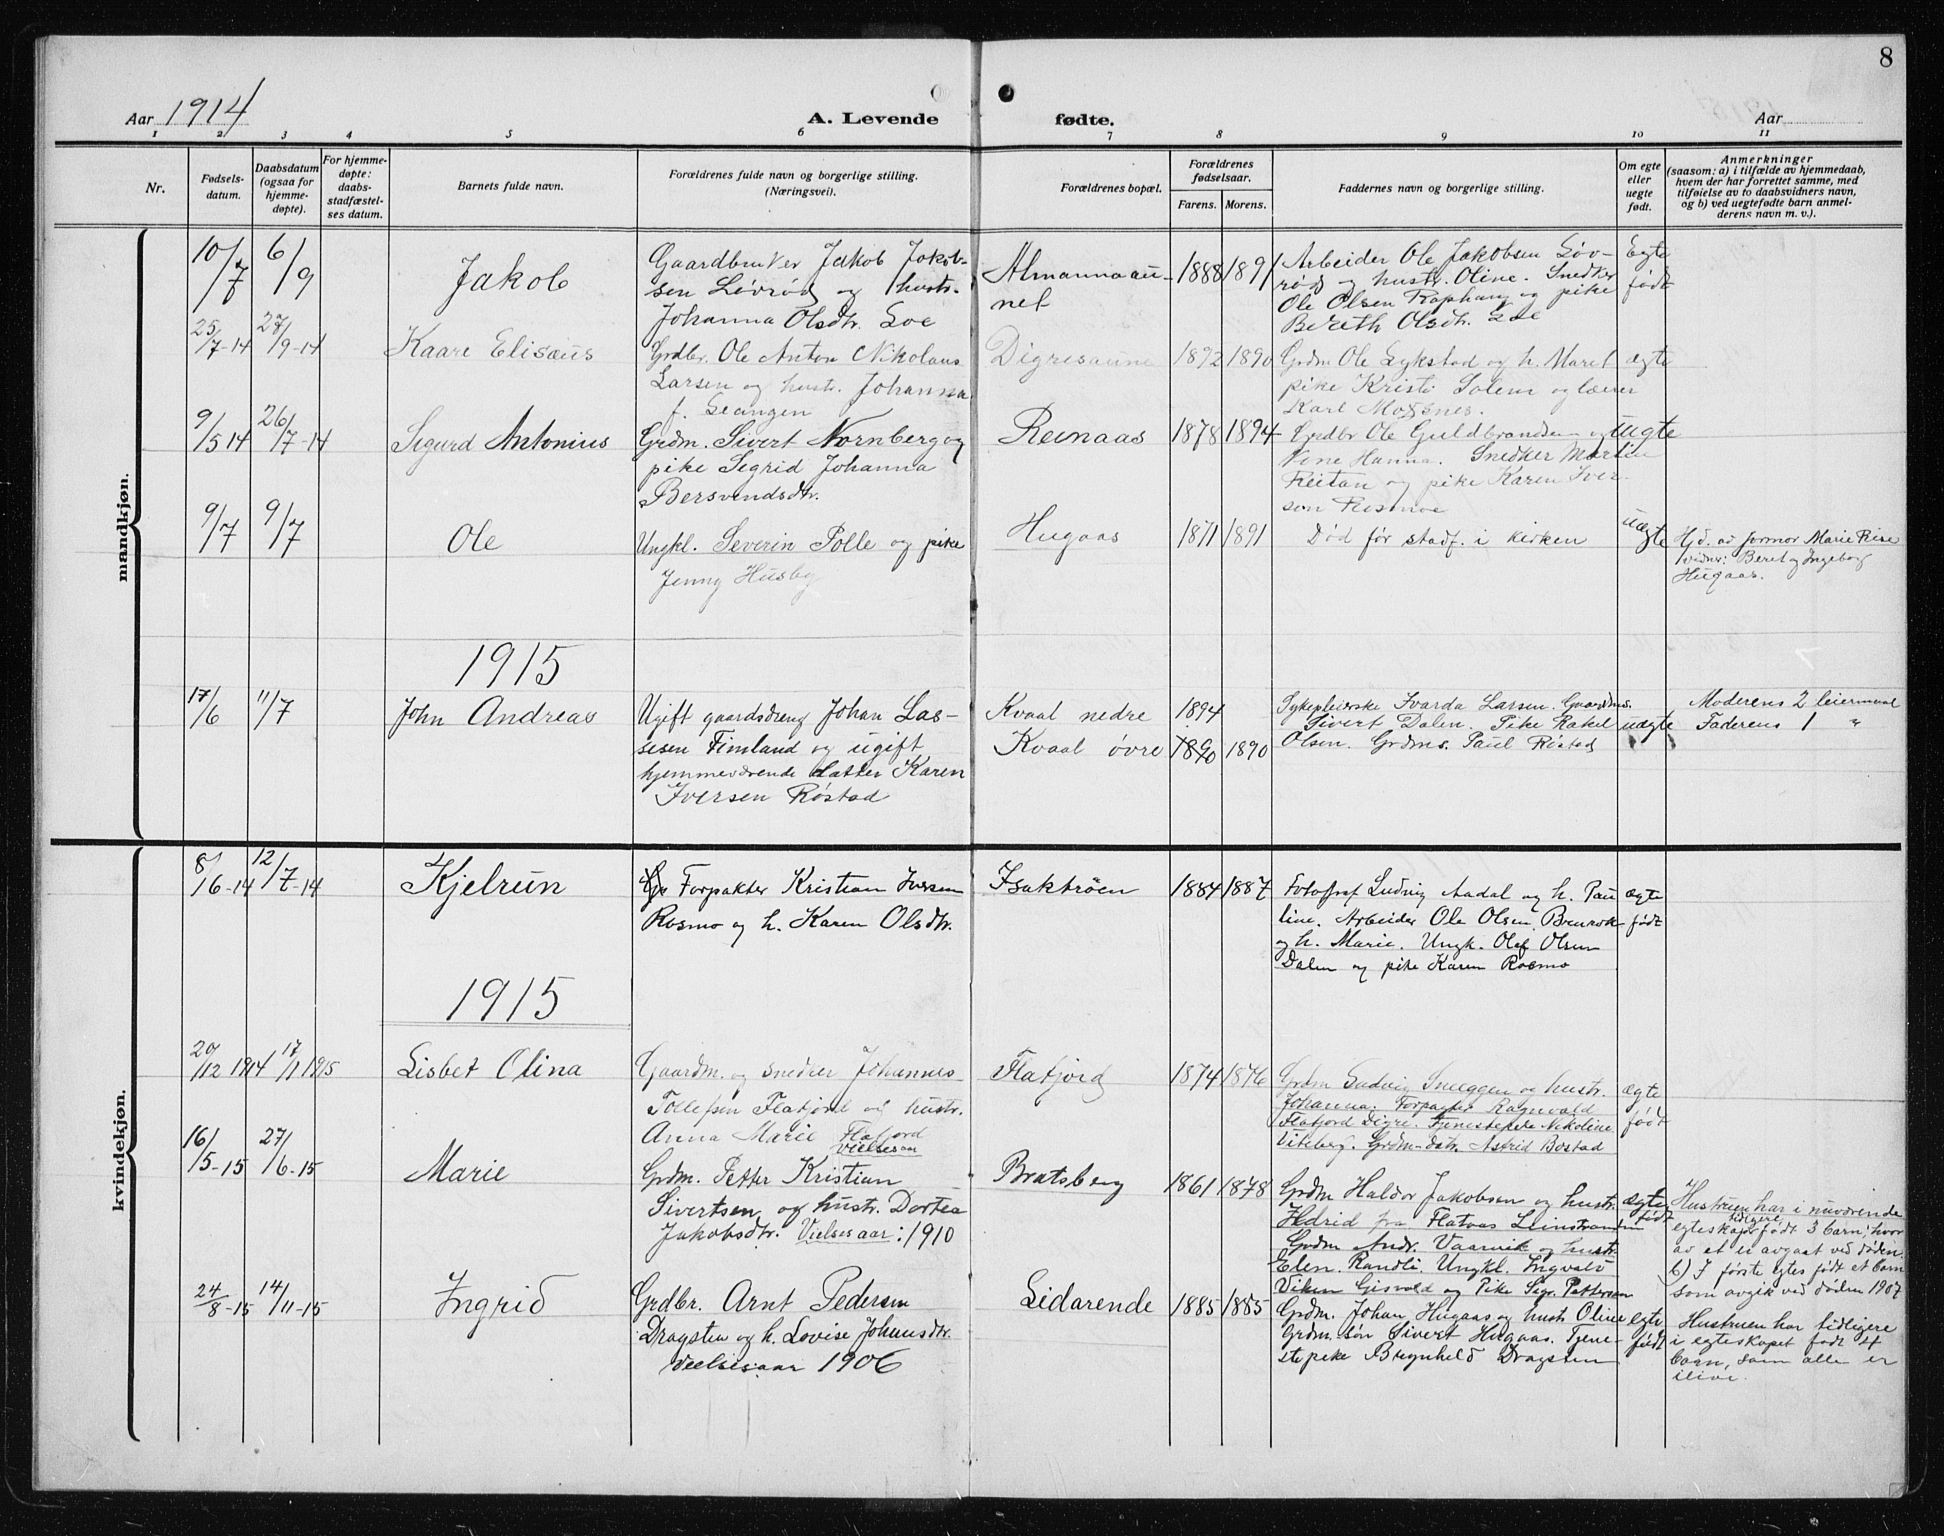 8
Aar 1914
A. Levende fødte.
Aar
1 2 3 4 5 6 7 8 9 10 11
Nr.
Fødsels-
datum.
Daabsdatum
(ogsaa for
hjemme-
døpte).
For hjemme-
døpte:
daabs-
stadfæstel-
ses datum.
Barnets fulde navn.
Forældrenes fulde navn og borgerlige stilling.
(Næringsvei).
Forældrenes bopæl.
Forældrenes
fødselsaar.
Farens. Morens.
Faddernes navn og borgerlige stilling.
Om egte
eller
uegte
født.
Anmerkninger
(saasom: a) i tilfælde av hjemmedaab,
hvem der har forrettet samme, med
tilføielse av to daabsvidners navn,
og b) ved uegtefødte barn anmel-
derens navn m. v.).
mandkjøn.
10/7 6/9
Jakob
Gaardbruker Jakob Jakob-
sen Løvrød og hustr.
Johanna Olsdtr. Loe
Almannaau-
net
1888 1891
Arbeider Ole Jakobsen Løv-
rød og hustr. Oline. Snedker
Ole Olsen og pike
Bereth Olsdtr. Loe
Egte
født
25/7-14 27/9-14
Kaare Elisæus
Grdbr. Ole Anton Nikolaus
Larsen og hustr. Johanna
f. Leangen
Digresaune
1892 1890
Grdm Ole Lykstad og h. Maret
pike Kristi Solem og lærer
Karl Moxnes.
ægte
9/5 14 26/7-14
Sigurd Antonius
Grdm. Sivert Nornberg og
pike Sigrid Johanna
Bersvendsdtr.
Reinaas
1878 1894
Grdbr Ole Guldbrandsen og
Hanna. Snedker Martin
Reitan og pike Karen Iver-
sen
uegte
9/7 9/7
Ole
Ungkl. Severin Solle og pike
Jenny Husby
Hugaas
1871 1891
Død før stadf. i kirken
uægte
Hjd. av formor Marie Rise
vidner: Beret og Ingeborg
Hugaas.
1915
17/6 11/7
John Andreas
Ugift gaardsdreng Johan Las-
sesen Fimland og ugift
hjemmeværende datter Karen
Iversen Røstad
Kvaal nedre
Kvaal øvre
1894
1890 1890
Sykepleierske Svarda Larsen. Gaardms.
Sivert Dalen. Pike Rakel
Olsen. Grdms. Paul Røstad
uægte
Moderens 2 leiermaal
Faderens 1 "
kvindekjøn.
8/6-14 12/7-14
Kjelrun
Forpakter Kristian Iversen
Rosmo og h. Karen Olsdtr.
Isaktrøen
1884 1887
Fotograf Ludvig Aadal og h. Pau
line. Arbeider Ole Olsen Brenrok
og h. Marie. Ungk. Olef Olsen
Dalen og pike Karen Rosmo
ægte
født
1915
20/12 1914 17/1 1915
Lisbet Olina
Gaardm. og snedker Johannes
Tollefsen Flatjord og hustr.
Anna Marie Flatjord
Vielsesaar
Flatjord
1874 1876
Grdm Ludvig Sneggen og hustr.
Johanna. Forpagter Ragnvald
Flatjord Digre. Tjenestepike Nikoline
Viteberg. Grdm-datr. Astrid Bostad
ægte
født
16/5-15 27/6-15
Marie
Grdm. Petter Kristian
Sivertsen og hustr. Dortea
Jakobsdtr. Vielsesaar: 1910
Bratsberg
1861 1878
Grdm Haldor Jakobsen og hustr.
Hedrid fra Flataas Leinstranden
Grdm Andr. Vaarvik og hustr.
Elen. Randli. Ungkl. Ingvald
Viken Gisvold og Pike Sigr. Pettersen
ægte
født
Hustruen har i nuværende
egteskap tidligere født 3 barn, hvor
av et er avgaat ved døden.
b) I første egtes født et barn
som avgik ved døden 1907
24/8-15 14/11-15
Ingrid
Grdbr. Arnt Pedersen
Dragsten og h. Lovise Johansdtr.
Vielsesaar 1906
Lidarende
1885 1885
Grdm. Johan Hugaas og hustr Oline
Grdm. søn Sivert Hugaas. Tjene-
stepike Brynheld Dragsten
egte
født
Hustruen har tidligere
i egteskapet født 4
barn, som alle er
ilive.